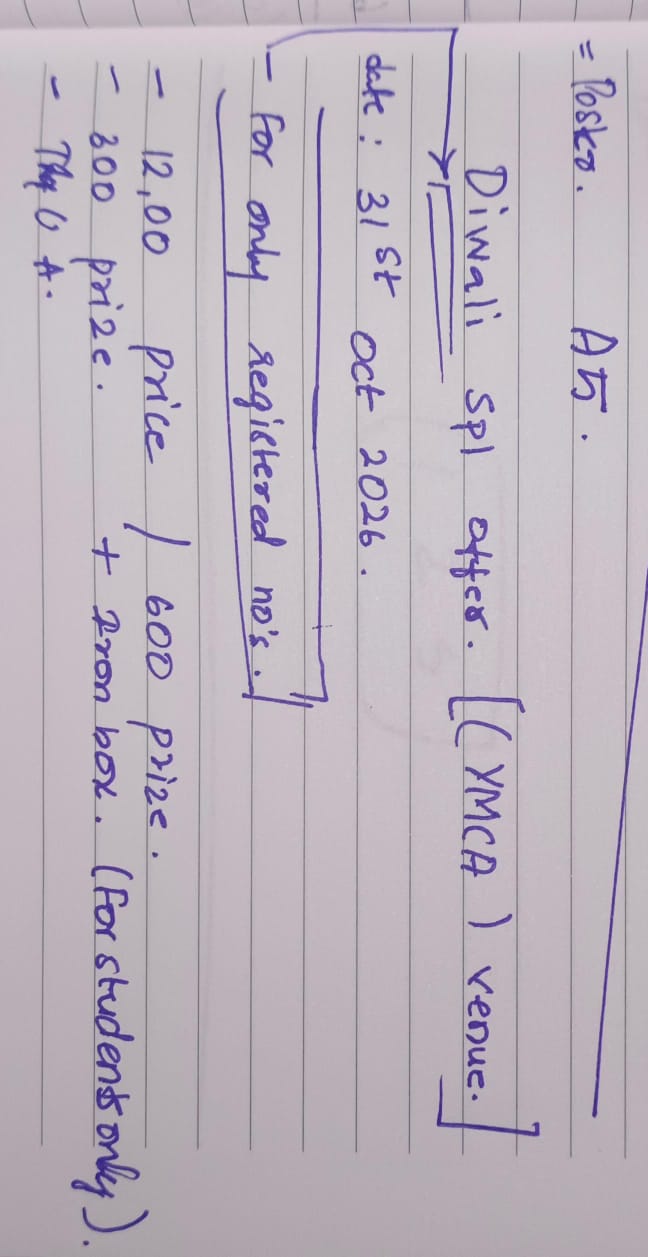 = Posko. A5.
Diwali spl offer. [(YMCA) venue.]
date: 31st oct 2026.
- for only registered no's.
- 12,00 price / 600 prize.
- 300 prize. + Iron box. (for students only).
-